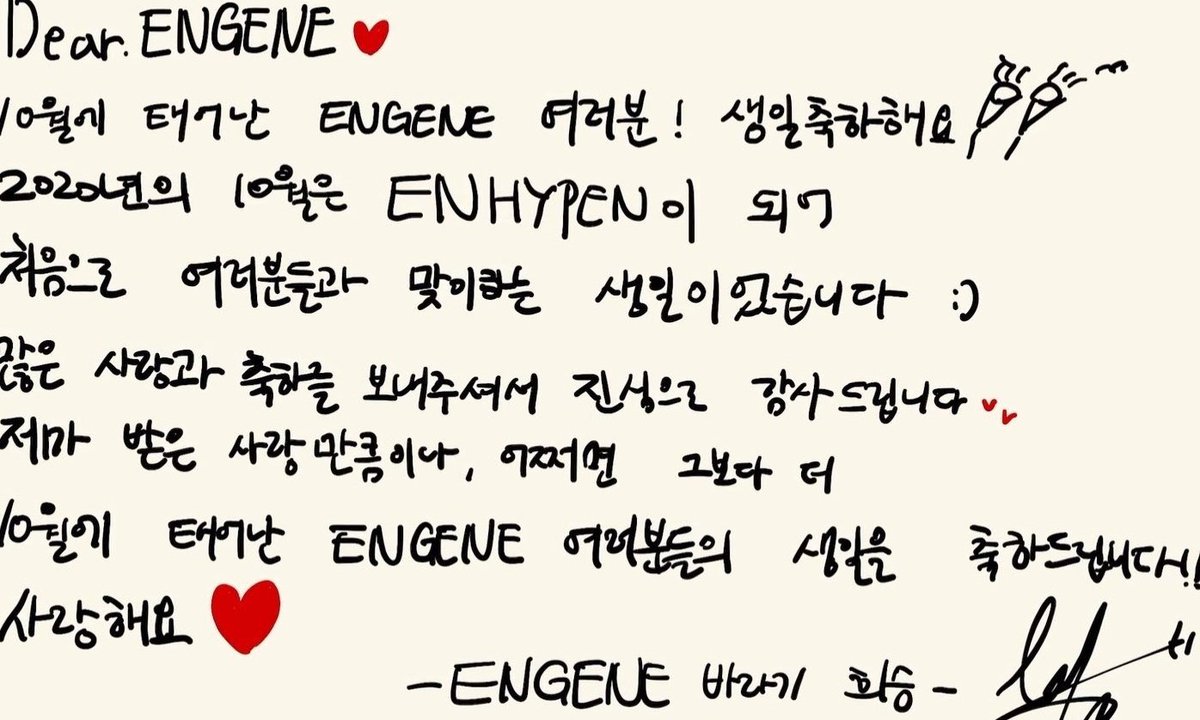 Dear. ENGENE
10월에 태어난 ENGENE 여러분! 생일축하해요
2020년의 10월은 ENHYPEN이 되어
처음으로 여러분들과 맞이하는 생일이었습니다 :)
많은 사랑과 축하를 보내주셔서 진심으로 감사드립니다
제가 받은 사랑만큼이나, 어쩌면 그보다 더
10월에 태어난 ENGENE 여러분들의 생일을 축하드립니다!!
사랑해요
-ENGENE 바라기 희승-